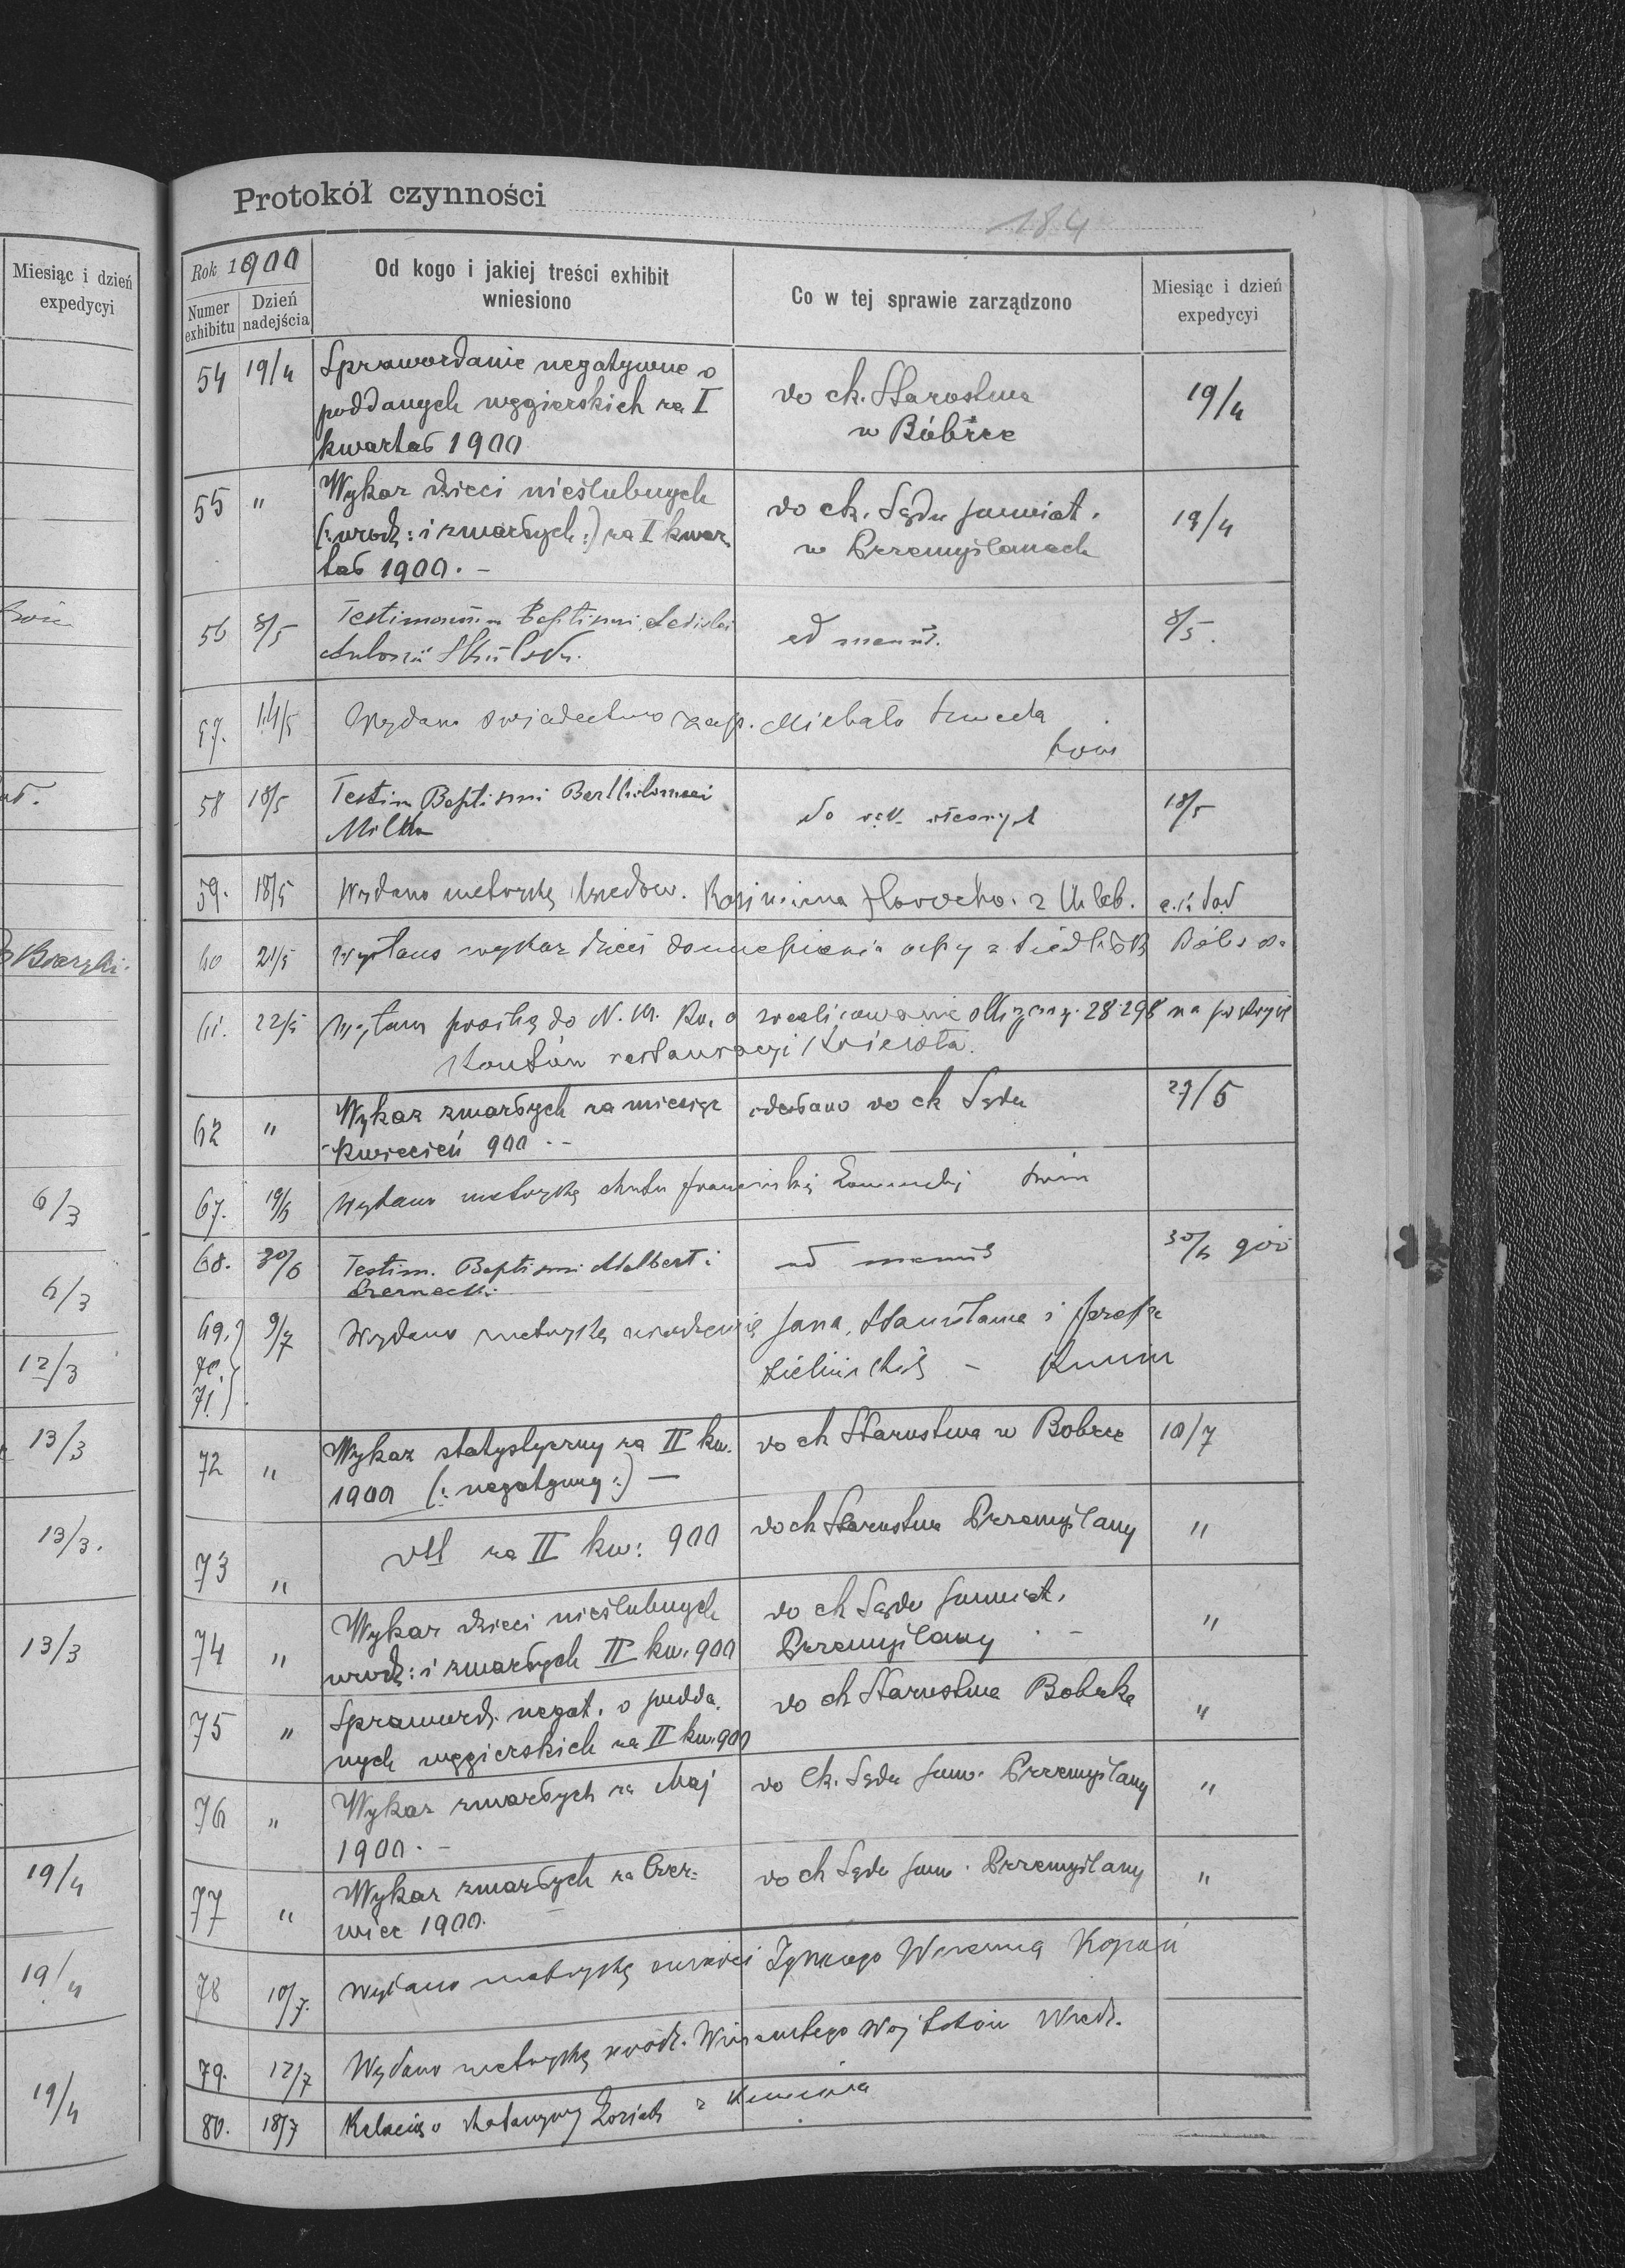 Protokół czynności
184
Miesiąc i dzień
expedycyi
6/3
6/3
12/3
13/3
13/3.
13/3
19/4
19/4
19/4
Rok 1900
Numer exhibitu
Dzień nadejścia
Od kogo i jakiej treści exhibit
wniesiono
Co w tej sprawie zarządzono
Miesiąc i dzień
expedycyi
54 19/4 Sprawozdanie negatywne o
poddanych węgierskich za I
kwartał 1900
do ck. Starostwa
w Bóbrce
19/4
55 " Wykaz dzieci nieślubnych
(: urodz: i zmarłych :) za I kwar
tał 1900. -
do ck. Sądu powiat.
w Przemyślanach
19/4
56 8/5 Testimonium Baptismi
Antonii
ad manus.
8/5.
57. 14/5 Wydano świadectwo zap. Michała
58 18/5 Testim Baptismi Bartholomaei
do rąk
18/5
59. 18/5 Wydano metrykę z Chleb.
60 21/5 Wysłano wykaz dzieci do szczepienia ospy z Siedlisk
61. 22/5 prośbę do 28.298 na
restauracyi kościoła.
62 " Wykaz zmarłych za miesiąc
Kwiecień 900 . -
odesłano do ck Sądu
67. 19/6 Wydano metrykę
68. 30/6 Testim. Baptismi Adalberti
Czernecki
ad manus
30/6 900
69. 9/7 Wydano metrykę urodzenia Jana, Stanisława i Józefa
70.
71.
72 " Wykaz statystyczny za II kw.
1900 (: negatywny :) —
do ck Starostwa w Bobrce
10/7
73 " dtt za II kw: 900
do ck Starostwa Przemyślany
"
74 " Wykaz dzieci nieślubnych
urodz: i zmarłych II kw. 900
do ck Sądu powiat.
Przemyślany . -
"
75 " Sprawozd. negat. o podda
nych węgierskich za II kw. 900
do ck Starostwa Bobrka
"
76 " Wykaz zmarłych za Maj
1900. -
do Ck. Sądu pow. Przemyślany
"
77 " Wykaz zmarłych za Czer-
wiec 1900.
do ck Sądu pow. Przemyślany
"
78 10/7. Wydano metrykę śmierci Ignacego Kopań
79. 12/7 Wydano metrykę urodz. Wincentego
80. 18/7 Relacię o